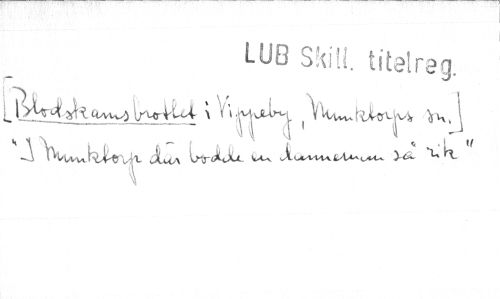 LUB Skill. titelreg.
[Blodskamsbrottet i Vippeby, Munktorps sn.]
"I Munktorp där bodde en danneman så rik"